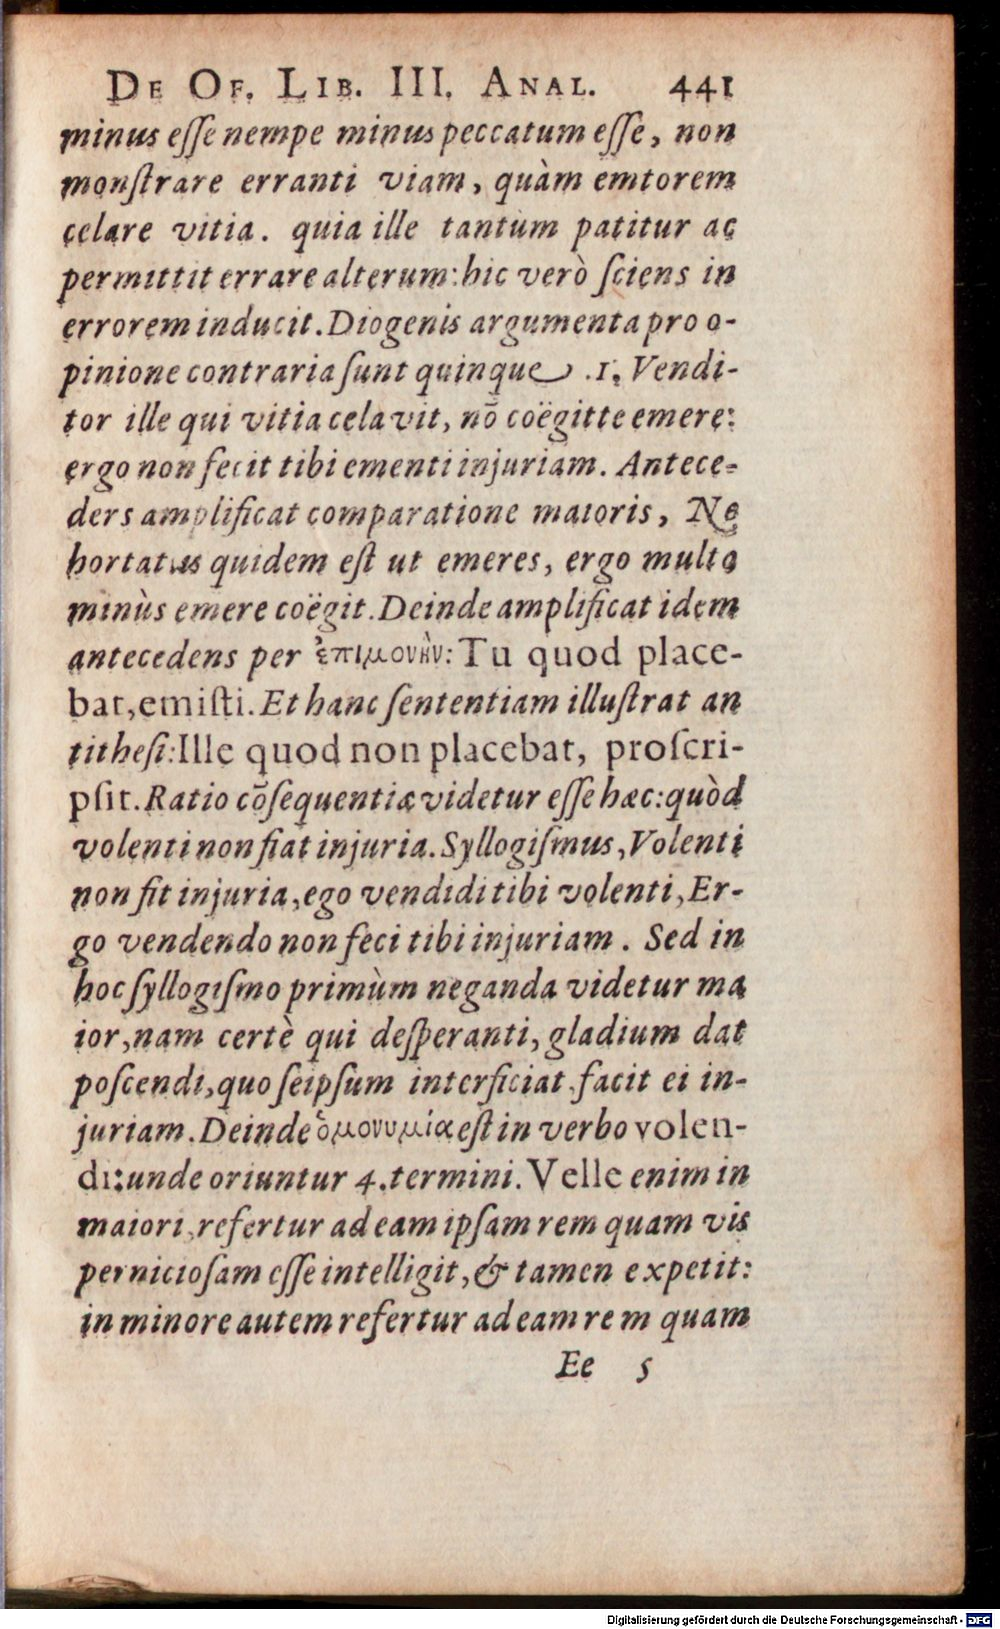 De Of. Lib. III. Anal. 441
minus eſſe nempe minus peccatum eſſe, non
monſtrare erranti viam, quàm emtorem
celare vitia. quia ille tantùm patitur ac
permittit errare alterum: hic verò ſciens in
errorem inducit. Diogenis argumenta pro o-
pinione contraria ſunt quinque .1. Vendi-
tor ille qui vitia celavit, nō coëgit te emere:
ergo non fecit tibi ementi injuriam. Antece-
ders amplificat comparatione maioris, Ne
hortatus quidem eſt ut emeres, ergo multo
minùs emere coëgit. Deinde amplificat idem
antecedens per ἐπιμονὴν: Tu quod place-
bat, emiſti. Et hanc ſententiam illuſtrat an
titheſi: Ille quod non placebat, proſcri-
pſit. Ratio cōſequentiæ videtur eſſe hæc: quòd
volenti non fiat injuria. Syllogiſmus, Volenti
non fit injuria, ego vendidi tibi volenti, Er-
go vendendo non feci tibi injuriam. Sed in
hoc ſyllogiſmo primùm neganda videtur ma
ior, nam certè qui deſperanti, gladium dat
poſcendi, quo ſeipſum interficiat facit ei in-
juriam. Deinde ὁμονυμία eſt in verbo volen-
di: unde oriuntur 4. termini. Velle enim in
maiori, refertur ad eam ipſam rem quam vis
pernicioſam eſſe intelligit, & tamen expetit:
in minore autem refertur ad eam rem quam
Ee 5
Digitalisierung gefördert durch die Deutsche Forschungsgemeinschaft - DFG